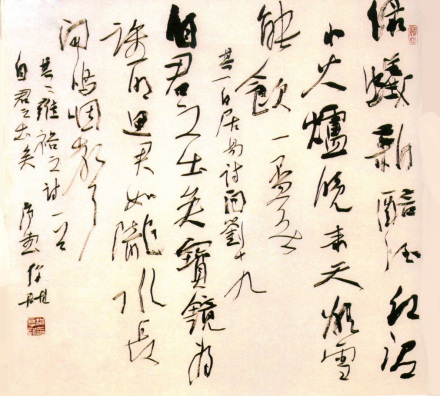 绿蟻新醅酒红泥
小火爐晚来天欲雪
能飲一盃无
其一白居易诗问劉十九
自君之出矣寶鏡为
誰明思君如隴水長
闻嗚咽声
其二雍裕之诗一首
自君之出矣